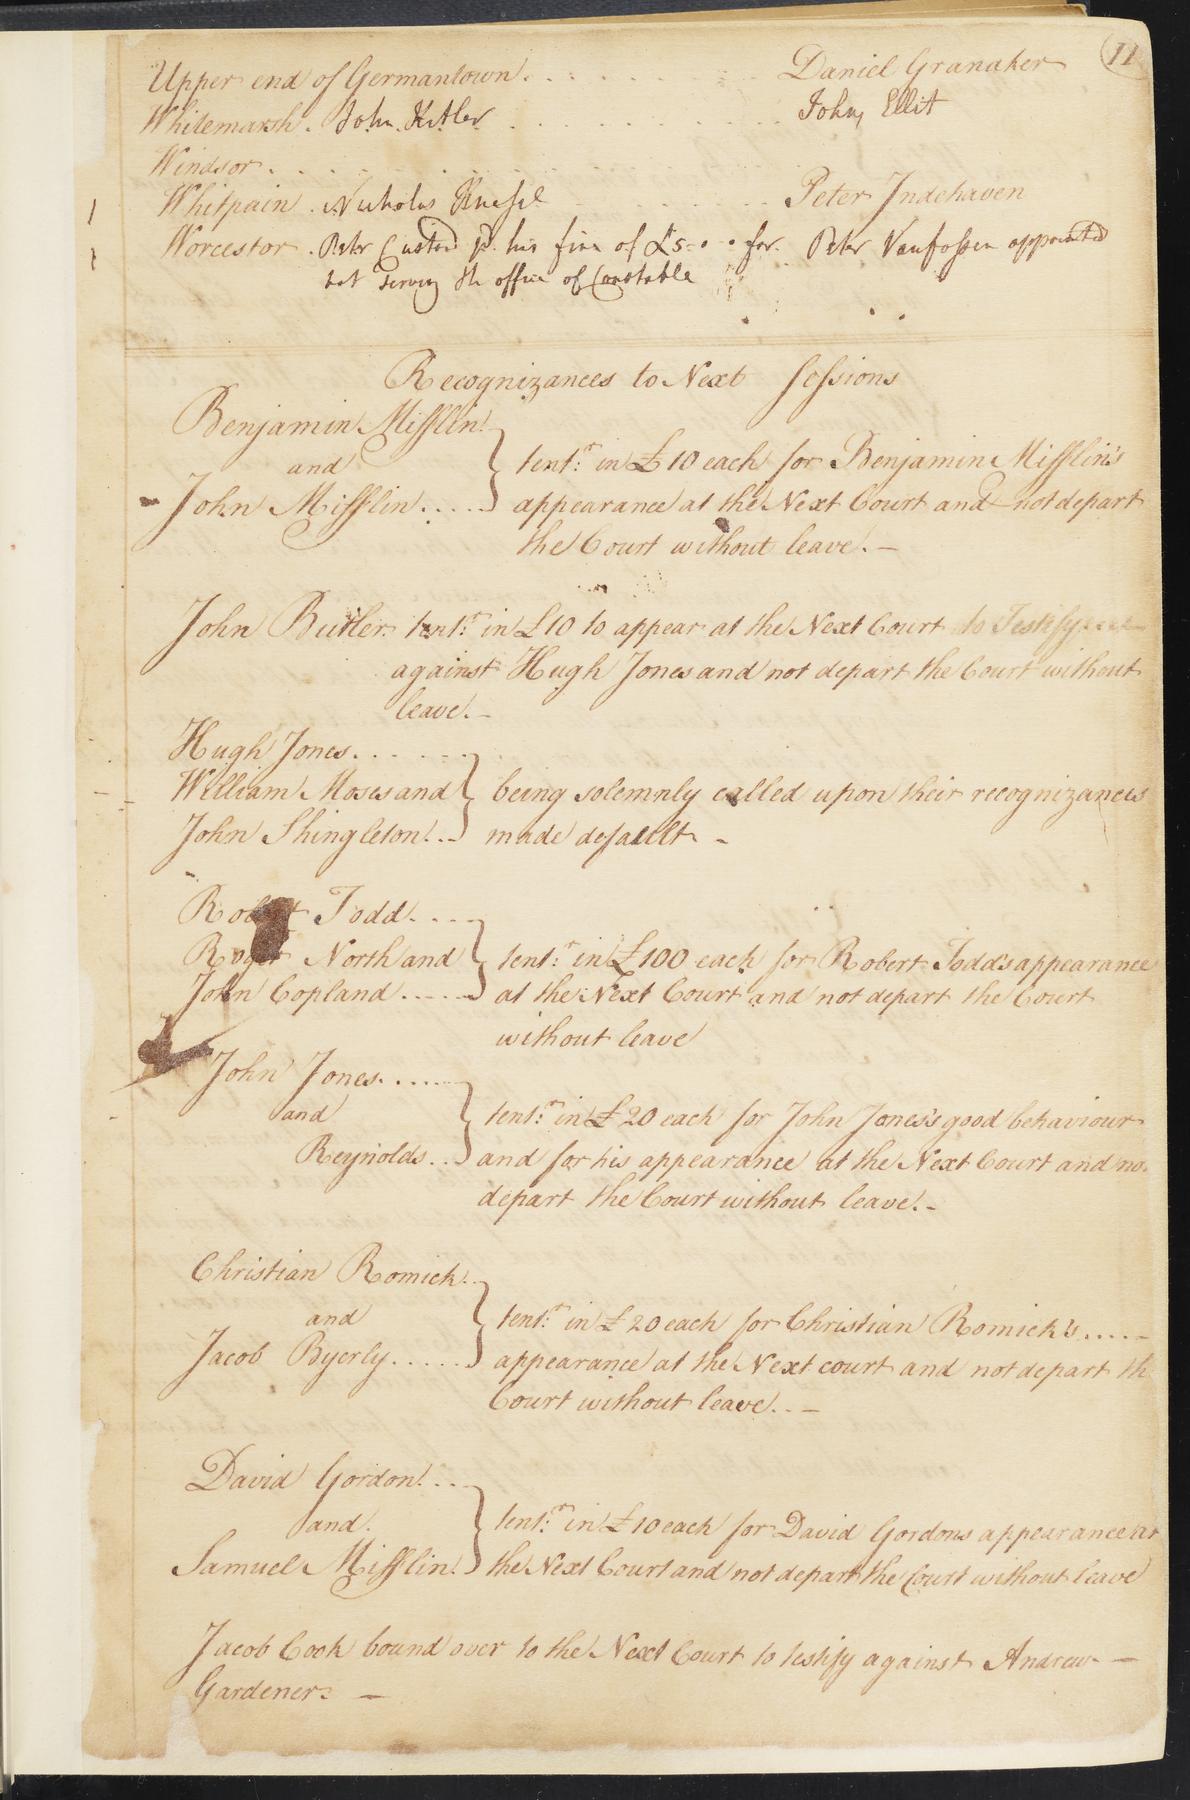 11
Upper end of Germantown. . . . . . . . . Daniel Granaker
Whitemarsh. John Kitler . . . . . . . . . John Ellit
Windsor. . . . . . . .
Whitpain. Nicholas . . . . . . Peter Indehaven
Worcestor. Peter Custard pd. his fine of £5 - . - . for Peter Vanfossen appointed
not serving the office of Constable
Recognizances to Next Sessions
Benjamin Mifflin
and
John Mifflin . . . . .
tent:r in £10 each for Benjamin Mifflin's
appearance at the Next Court and not depart
the Court without leave. —
John Butler tent:r in £10 to appear at the Next Court to Testify
against Hugh Jones and not depart the Court without
leave. —
Hugh Jones. . . . . . .
William Moses and
John Shingleton. . .
being solemnly called upon their recognizances
made default —
Robert Todd. . . .
Roger North and
John Copland . . . . .
tent:r in £100 each for Robert Todd's appearance
at the Next Court and not depart the Court
without leave
John Jones. . . . . .
and
Reynolds. . .
tent:r in £20 each for John Jones's good behaviour
and for his appearance at the Next Court and no
depart the Court without leave. —
Christian Romick. .
and
Jacob Byerly. . . . . .
tent:r in £20 each for Christian Romick's . . . . .
appearance at the Next court and not depart th
Court without leave. . . —
David Gordon. . . .
and
Samuel Mifflin.
tent:r in £10 each for David Gordons appearance at
the Next Court and not depart the Court without leave
Jacob Cook bound over to the Next Court to testify against Andrew —
Gardener. —